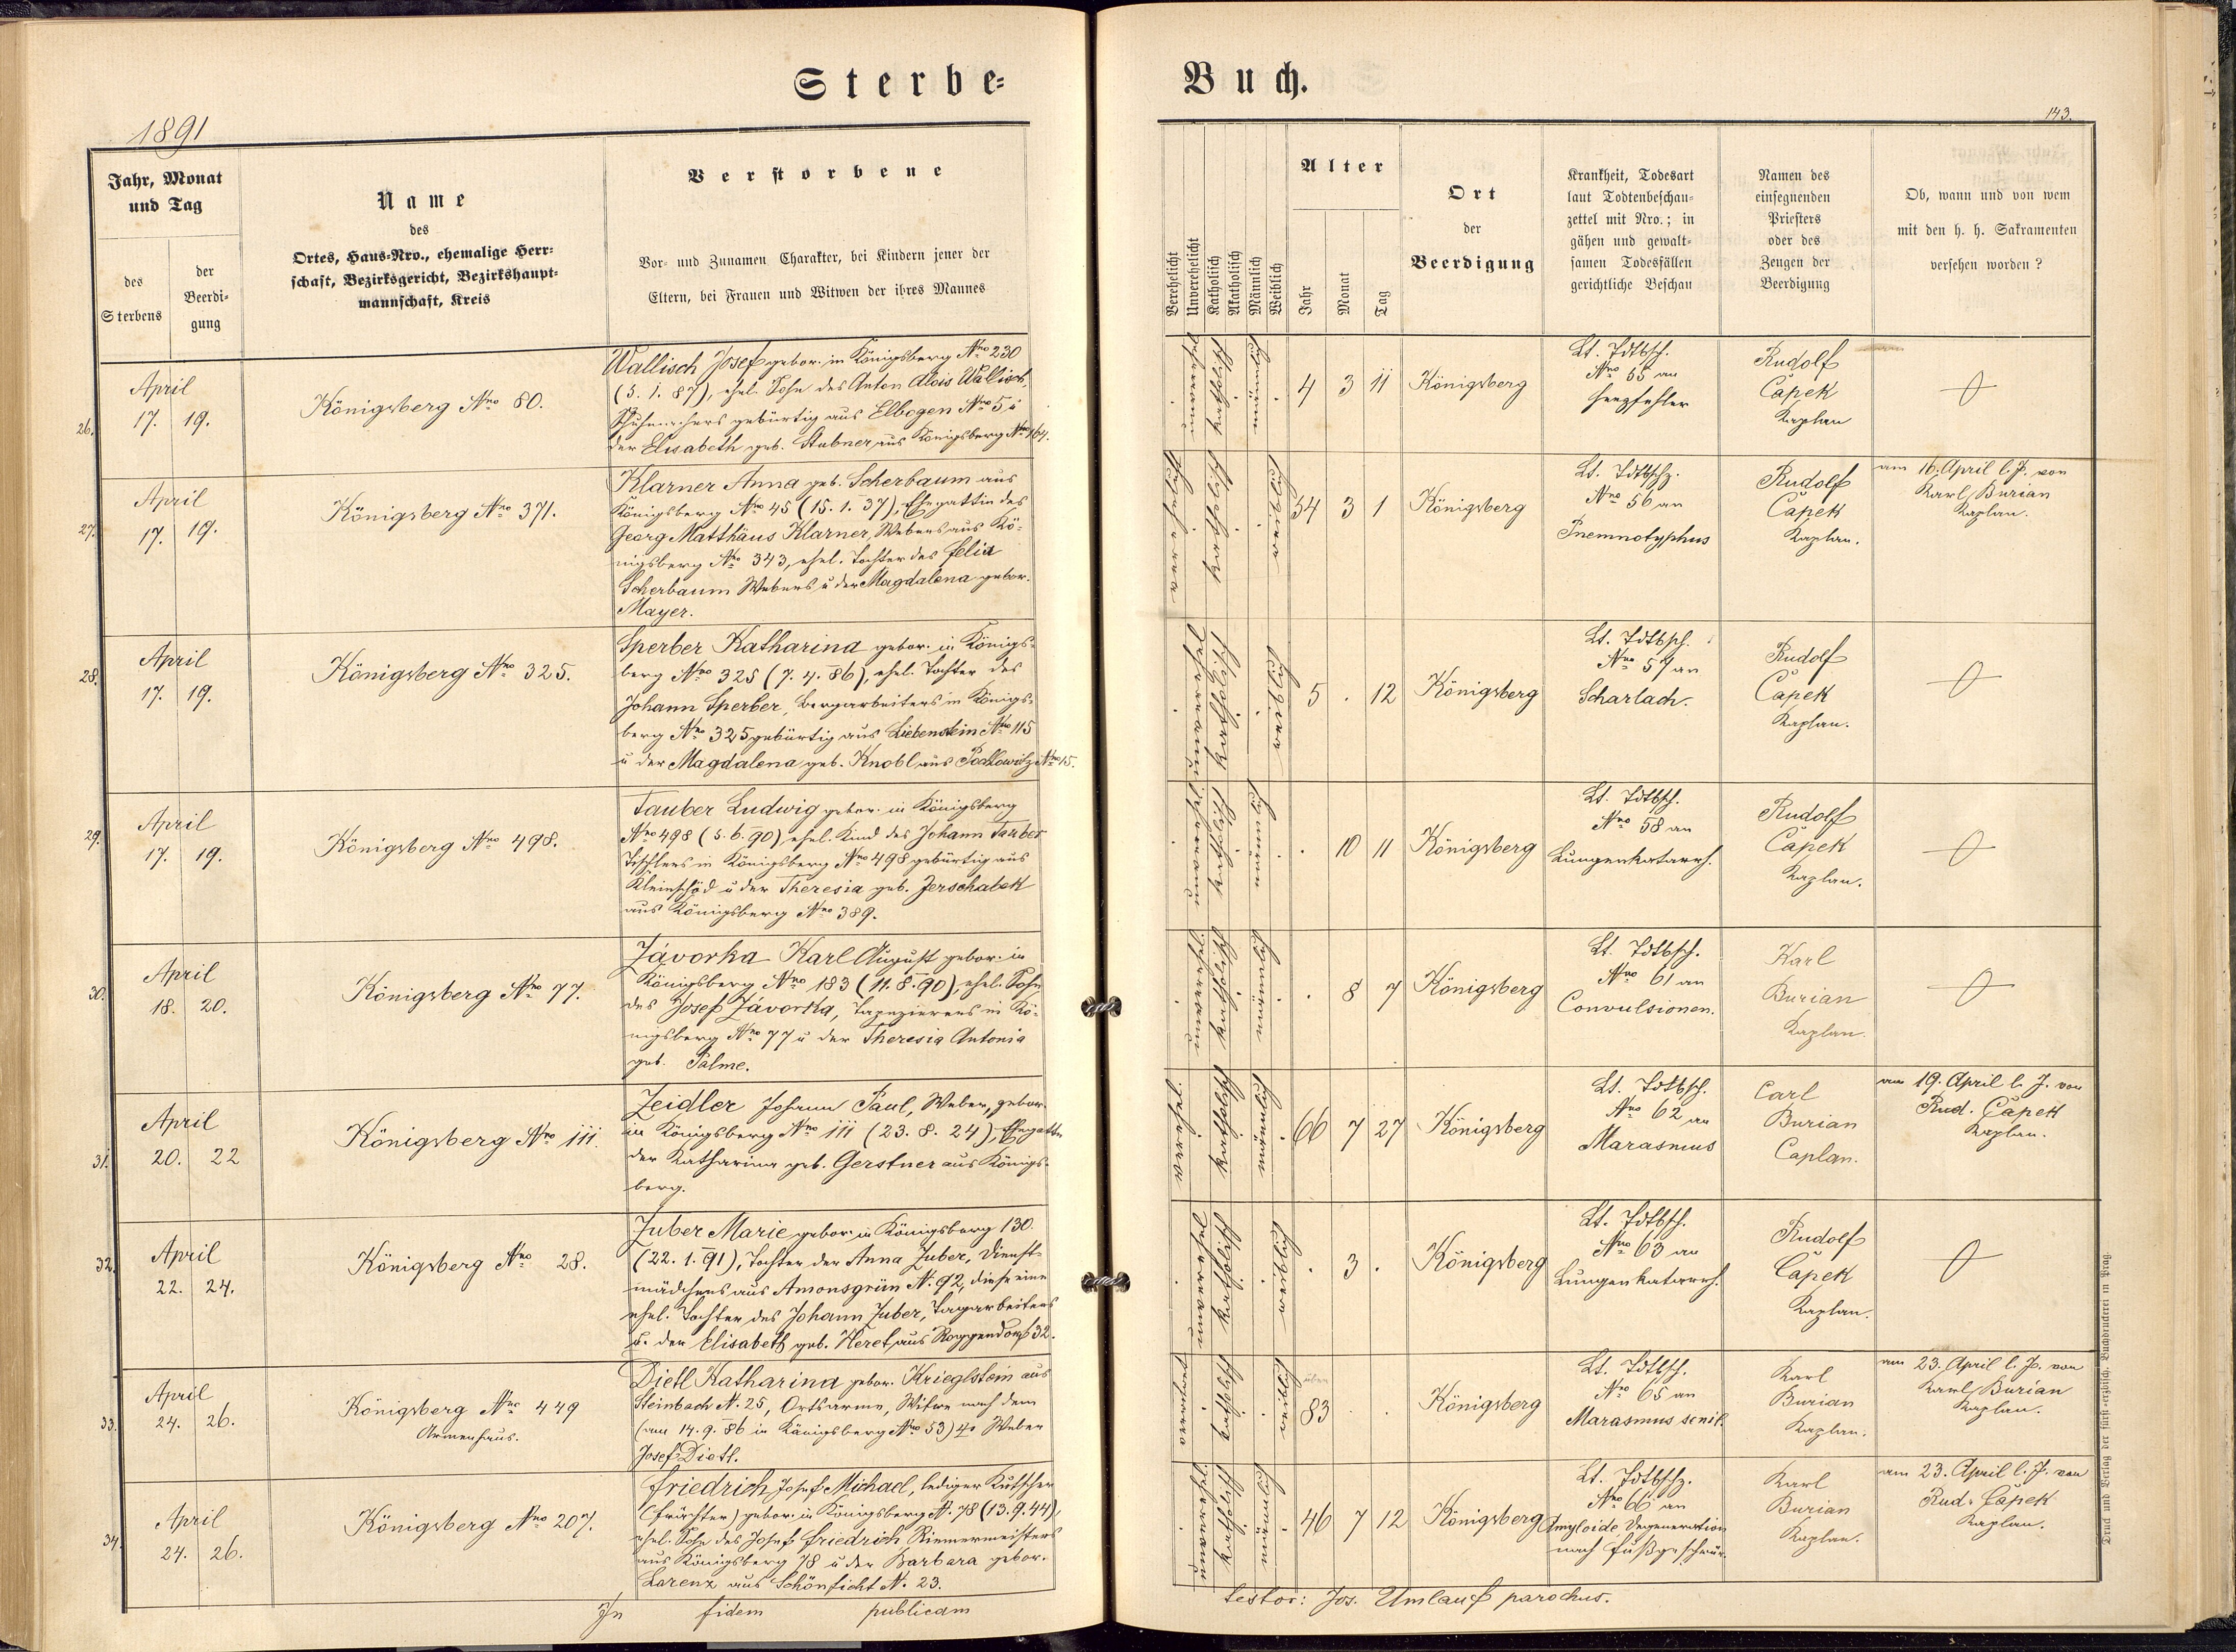 Sterbe-
Buch.
1891
143.
Jahr, Monat
und Tag
des
Sterbens
der
Beerdi-
gung
Name
des
Ortes, Haus-Nro., ehemalige Herr-
schaft, Bezirksgericht, Bezirkshaupt-
mannschaft, Kreis
Verstorbene
Vor- und Zunamen Charakter, bei Kindern jener der
Eltern, bei Frauen und Witwen der ihres Mannes
Verehelicht
Unverehelicht
Katholisch
Akatholisch
Männlich
Weiblich
Alter
Jahr
Monat
Tag
Ort
der
Beerdigung
Krankheit, Todesart
laut Todtenbeschau-
zettel mit Nro.; in
gähen und gewalt-
samen Todesfällen
gerichtliche Beschau
Namen des
einsegnenden
Priesters
oder des
Zeugen der
Beerdigung
Ob, wann und von wem
mit den h. h. Sakramenten
versehen worden?
26.
April
17. 19.
Königsberg Nro 80.
Wallisch Josef gebor. in Königsberg Nro 230
(5. 1. 87), ehel. Sohn des Anton Alois Wallisch,
Schuhmachers gebürtig aus Elbogen Nro 5 u
der Elisabeth geb. Stubner aus Königsberg Nro 164.
unverehel.
katholisch
männlich
4 3 11
Königsberg
Lt. Tdtbsch.
Nro 55 an
Herzfehler
Rudolf
Čapek
Kaplan
27.
April
17. 19.
Königsberg Nro 371.
Klarner Anna geb. Scherbaum aus
Königsberg Nro 45 (15. 1. 37), Ehegattin des
Georg Matthäus Klarner, Webers aus Kö-
nigsberg Nro 343, ehel. Tochter des Felix
Scherbaum Webers u der Magdalena gebor.
Mayer.
verehelicht
katholisch
weiblich
54 3 1
Königsberg
Lt. Tdtbschz.
Nro 56 an
Pnemnotyphus
Rudolf
Čapek
Kaplan.
am 16. April l. J. von
Karl Burian
Kaplan.
28.
April
17. 19.
Königsberg Nro 325.
Sperber Katharina gebor. in Königs-
berg Nro 325 (7. 4. 86), ehel. Tochter des
Johann Sperber, Bergarbeiters in Königs-
berg Nro 325 gebürtig aus Liebenstein Nro 115
u der Magdalena geb. Knobl aus Pochlowitz Nro 15.
unverehel.
katholisch
weiblich
5 . 12
Königsberg
Lt. Tdtbsch.
Nro 57 an
Scharlach.
Rudolf
Čapek
Kaplan.
29.
April
17. 19.
Königsberg Nro 498.
Tauber Ludwig gebor. in Königsberg
Nro 498 (5. 6. 90) ehel. Kind des Johann Tauber
Tischlers in Königsberg Nro 498 gebürtig aus
Kleinschöd u der Theresia geb. Jerschabek
aus Königsberg Nro 389.
unverehel.
katholisch
männlich
. 10 11
Königsberg
Lt. Tdtbsch.
Nro 58 an
Lungenkatarrh.
Rudolf
Čapek
Kaplan.
30.
April
18. 20.
Königsberg Nro 77.
Závorka Karl August gebor. in
Königsberg Nro 183 (11. 8. 90), ehel. Sohn
des Josef Závorka, Tapezierers in Kö-
nigsberg Nro 77 u der Theresia Antonia
geb. Palme.
unverehel.
katholisch
männlich
. 8 7
Königsberg
Lt. Tdtbsch.
Nro 61 an
Convulsionen.
Karl
Burian
Kaplan.
31.
April
20. 22
Königsberg Nro 111.
Zeidler Johann Paul, Weber, gebor.
in Königsberg Nro 111 (23. 8. 24), Ehegatte
der Katharina geb. Gerstner aus Königs-
berg.
verehel.
katholisch
männlich
66 7 27
Königsberg
Lt. Tdtbsch.
Nro 62 an
Marasmus
Carl
Burian
Caplan.
am 19. April l. J. von
Rud. Čapek
Kaplan.
32.
April
22. 24.
Königsberg Nro 28.
Zuber Marie gebor. in Königsberg 130.
(22. 1. 91), Tochter der Anna Zuber, Dienst-
mädchens aus Amonsgrün N. 92, diese eine
ehel. Tochter des Johann Zuber, Tagarbeiters
u. der Elisabeth geb. Heret aus Roggendorf 32.
unverehel.
katholisch
weiblich
. 3 .
Königsberg
Lt. Tdtbsch.
Nro 63 an
Lungenkatarrh.
Rudolf
Čapek
Kaplan.
33.
April
24. 26.
Königsberg Nro 449
Armenhaus.
Dietl Katharina gebor. Krieglstein aus
Steinbach N. 25, Ortsarme, Witwe nach dem
(am 14. 9. 86 in Königsberg Nro 53) Weber
Josef Dietl.
katholisch
weiblich
über
83 . .
Königsberg
Lt. Tdtbsch.
Nro 65 an
Marasmus senil.
Karl
Burian
Kaplan.
am 23. April l. J. von
Karl Burian
Kaplan.
34.
April
24. 26.
Königsberg Nro 207.
Friedrich Josef Michael, lediger Kutscher
(Frächter) gebor. in Königsberg N. 78 (13. 9. 44),
ehel. Sohn des Josef Friedrich Riemermeisters
aus Königsberg 78 u der Barbara gebor.
Lorenz aus Schönficht N. 23.
unverehel.
katholisch
männlich
46 7 12
Königsberg
Lt. Tdtbschz.
Nro 66 an
Amyloide Degeneration
nach Fußgeschwür.
Karl
Burian
Kaplan.
am 23. April l. J. von
Rud. Čapek
Kaplan.
In fidem publicam
testor: Jos. Umlauf parochus.
Druck und Verlag der fürst-erzbisch. Buchdruckerei in Prag.